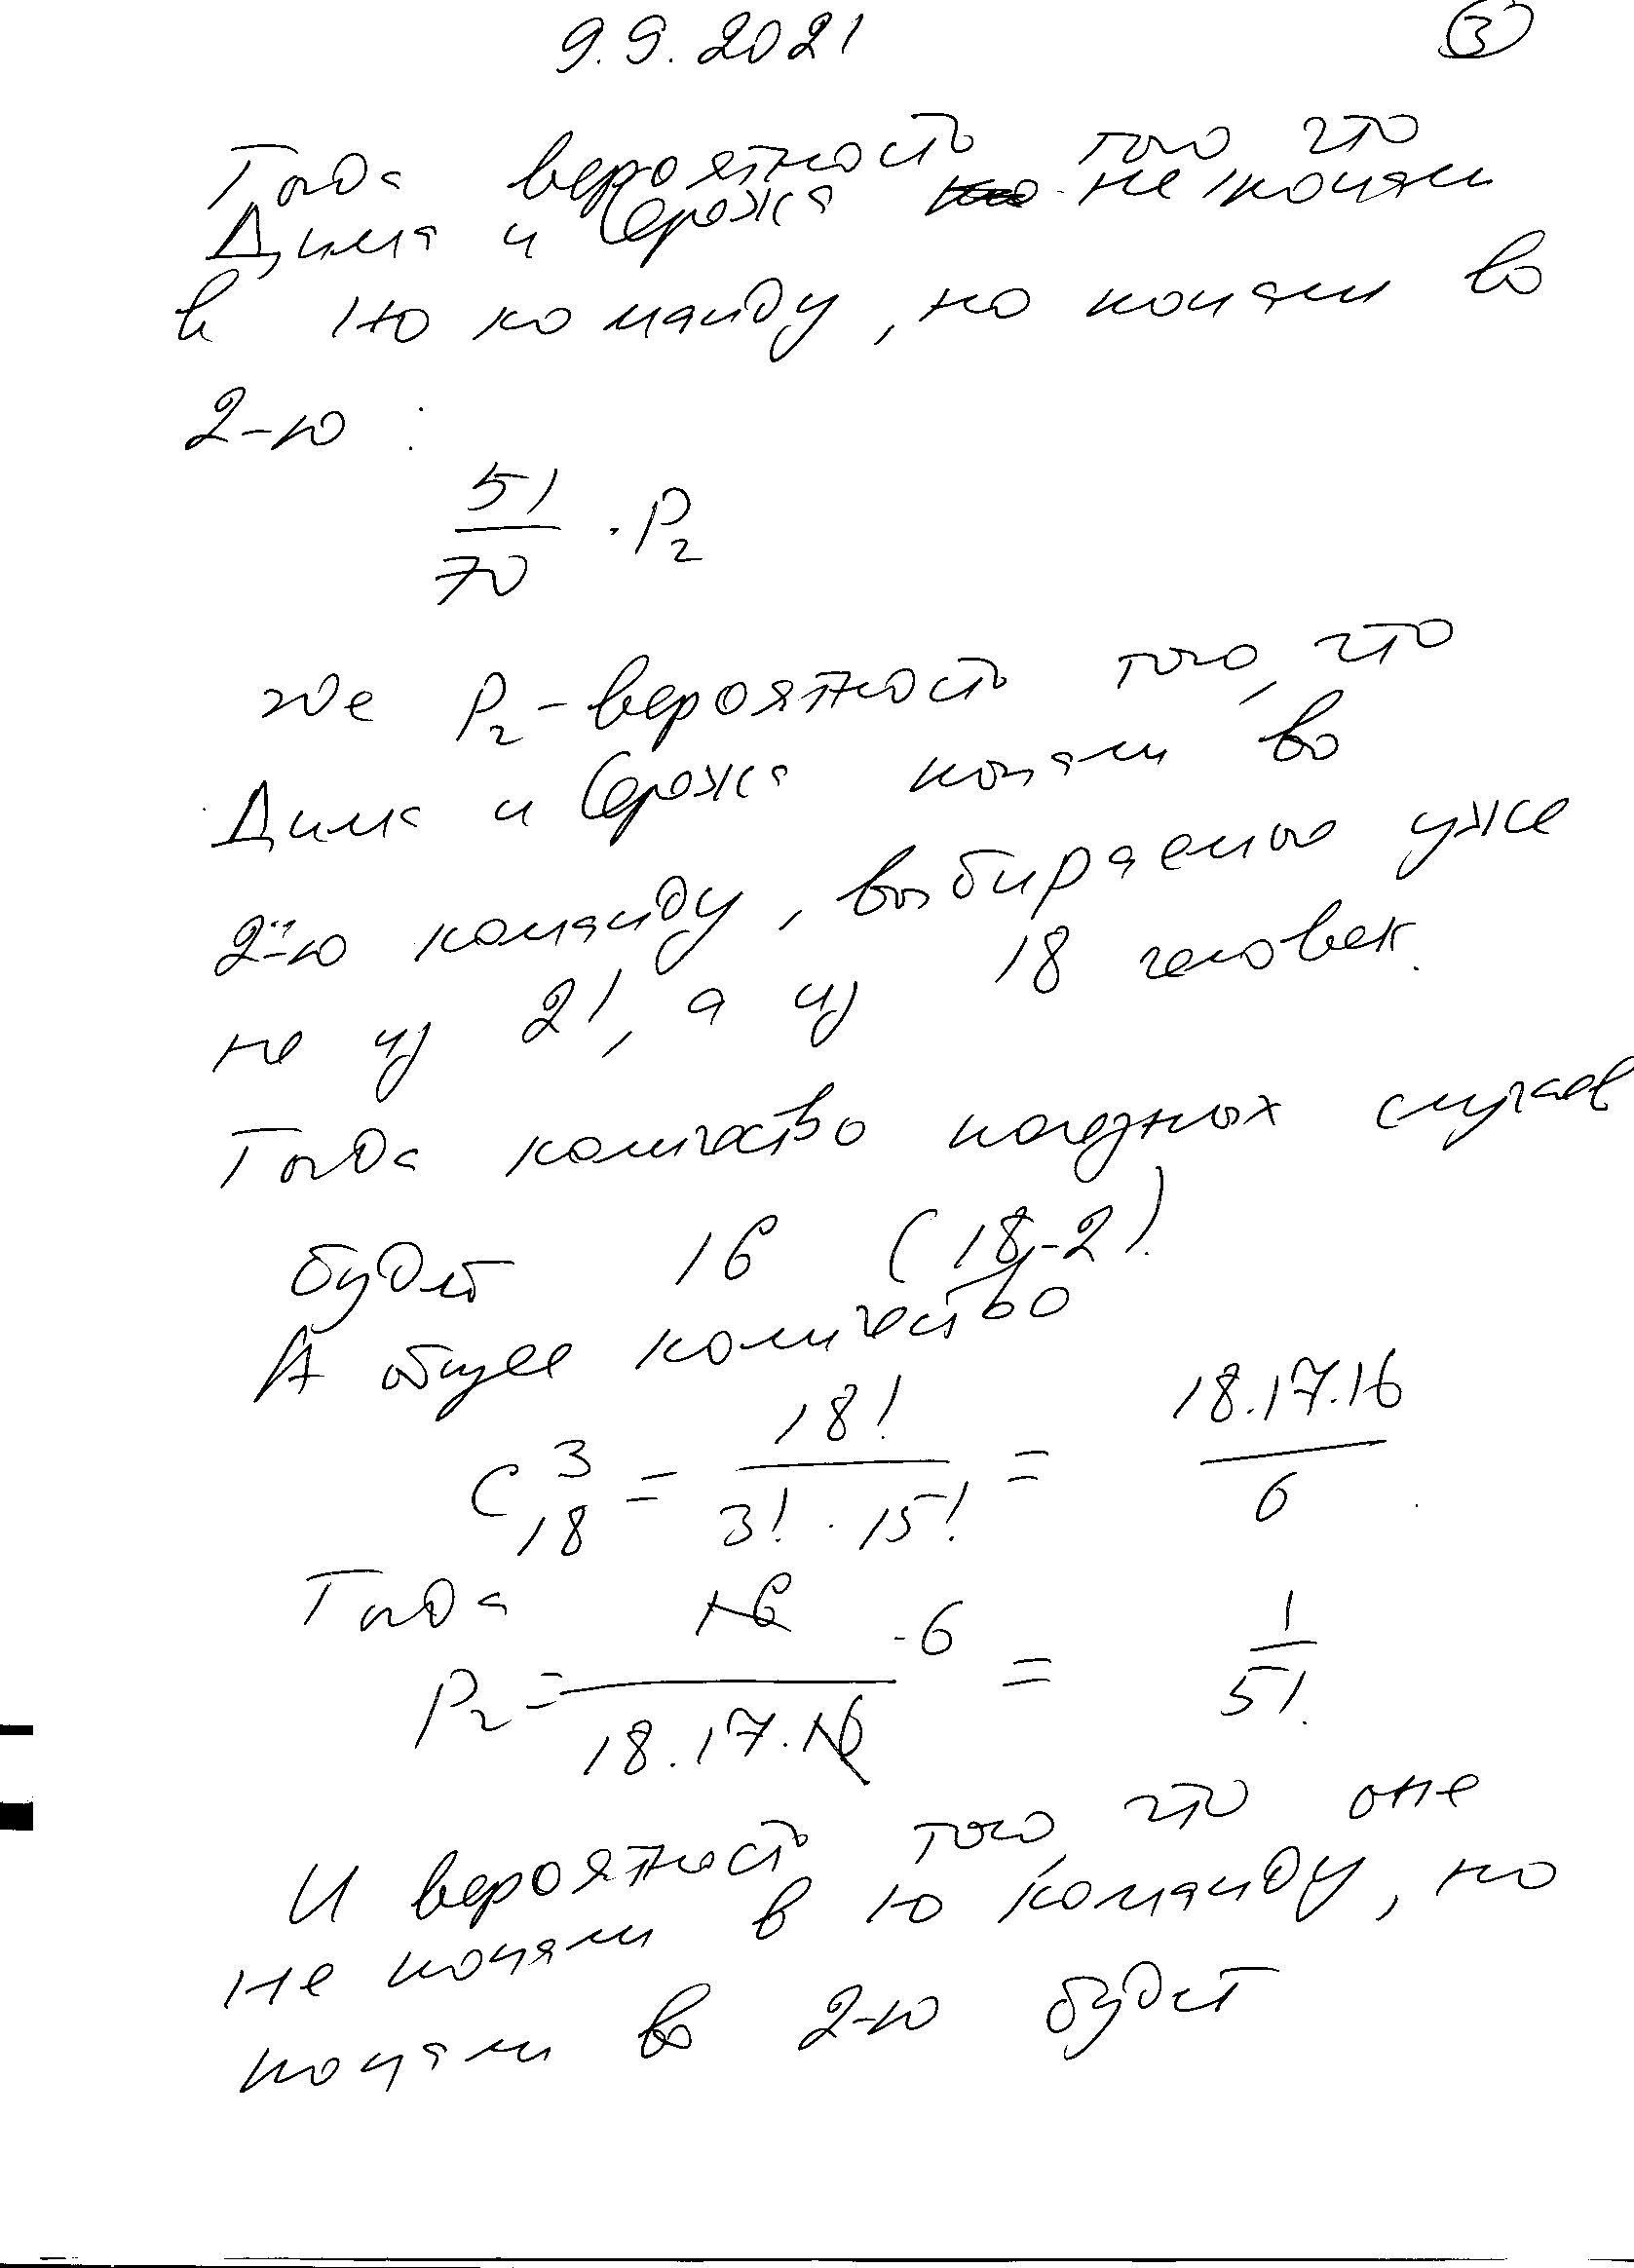 9.9.2021 3
Тогда вероятность того что
Дима и Сережа не попали
в 1-ю команду, но попали во
2-ю :
51/70 · P₂
где P₂ - вероятность того, что
Дима и Сережа попали во
2-ю команду, выбираемую уже
не из 21, а из 18 человек.
Тогда количество полезных случаев
будет 16 (18-2)
А общее количество
C³₁₈ = 18!/(3! · 15!) = 18·17·16/6
Тогда
P₂ = 16·6/(18·17·16) = 1/51
И вероятность того, что они
не попали в 1-ю команду, но
попали во 2-ю будет